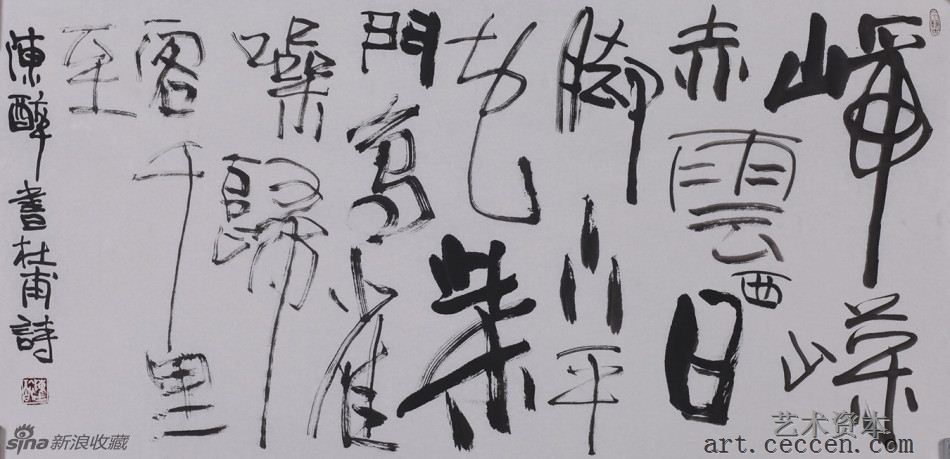 崢嶸
赤雲西日
脚下平
地柴
門鳥雀
噪歸
客千里
至
陳醉書杜甫詩
sina新浪收藏
艺术资本
art.ceccen.com